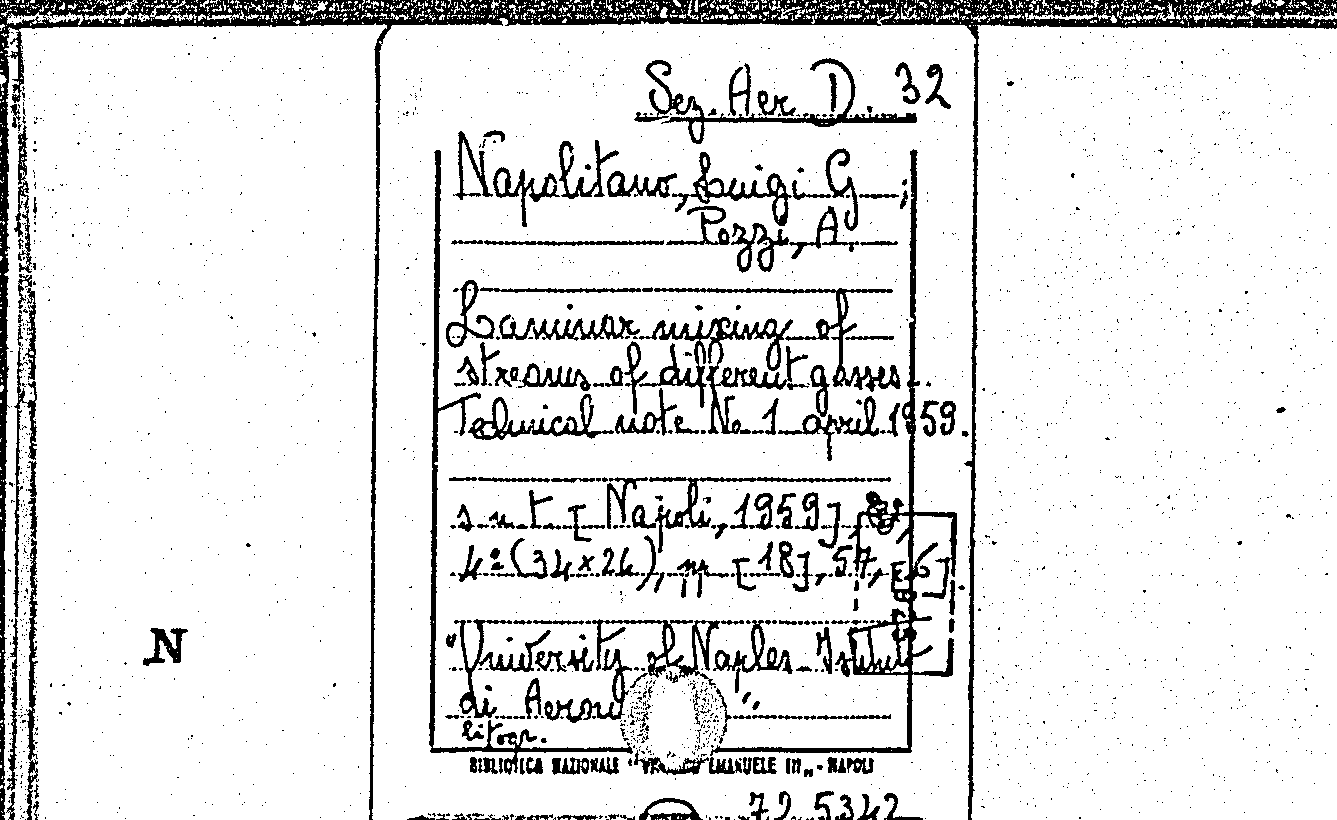 Sez. Aer D. 32
Napolitano, Luigi G ;
Pozzi, A.
Laminar mixing of
streams of different gasses.
Technical note No 1 april 1959.
s. n. t. [Napoli, 1959]
4º (34x24), pp [18], 57, [6]
N
"University of Naples. Istituto
di Aeronau ".
litogr.
BIBLIOTECA NAZIONALE "VITTORIO EMANUELE III" - NAPOLI
72 5342